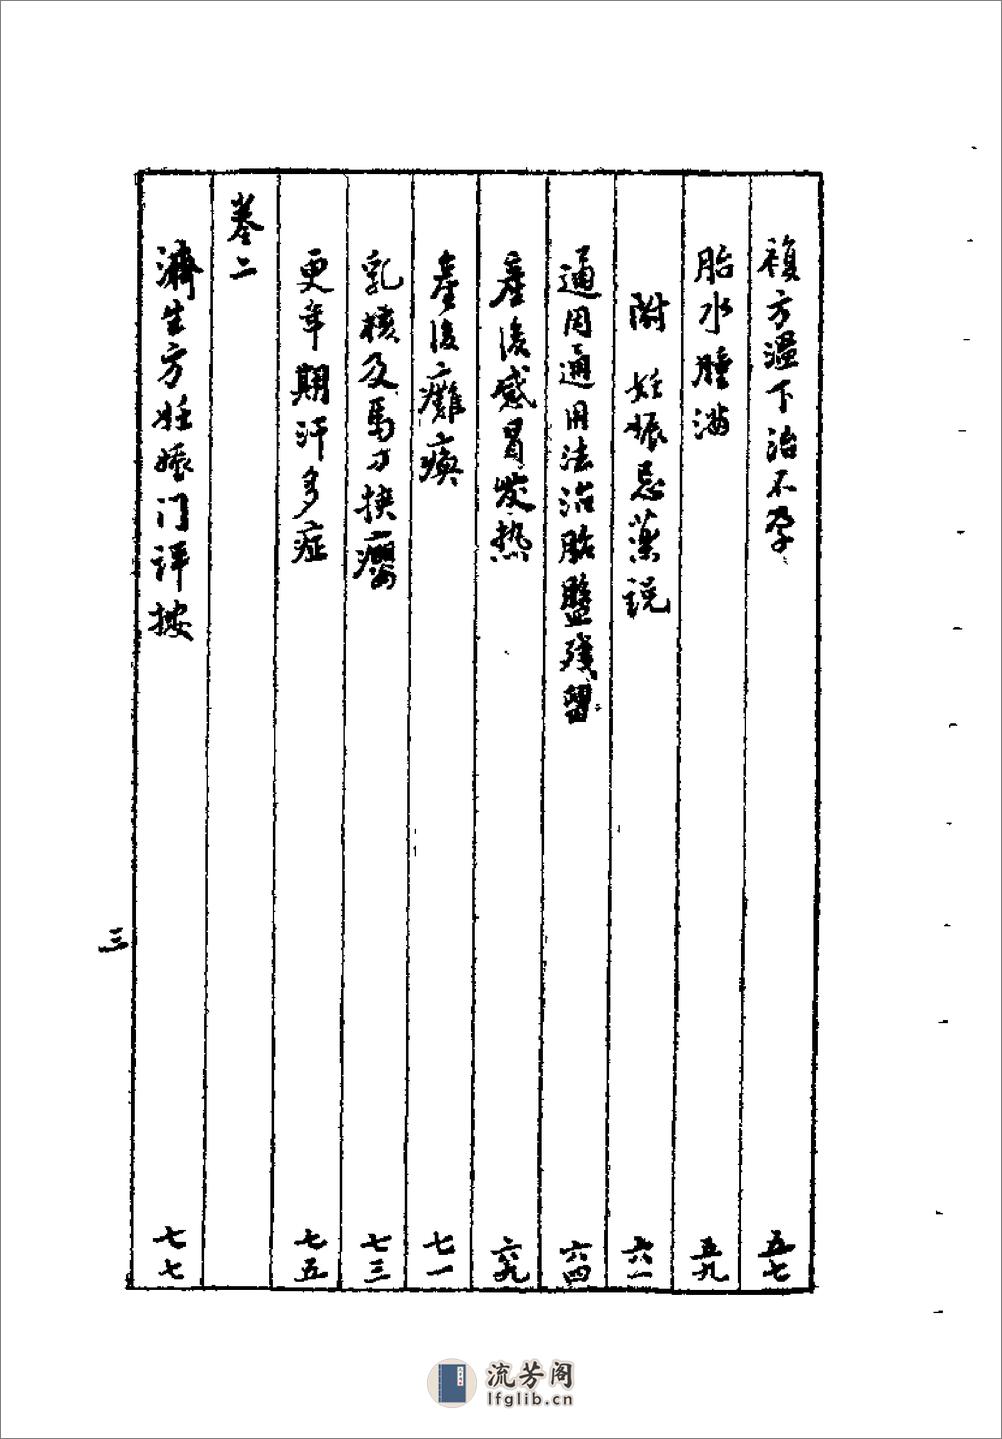 複方溫下治不孕 五七
胎水腫滿 五九
附 妊娠忌藥說 六一
通因通用法治胎盤殘留 六四
產後感冒发热 六九
產後癱瘓 七一
乳核及馬刀挾癭 七三
更年期汗多症 七五
卷二
濟生方妊娠门評按 七七
三
流芳阁
lfglib.cn